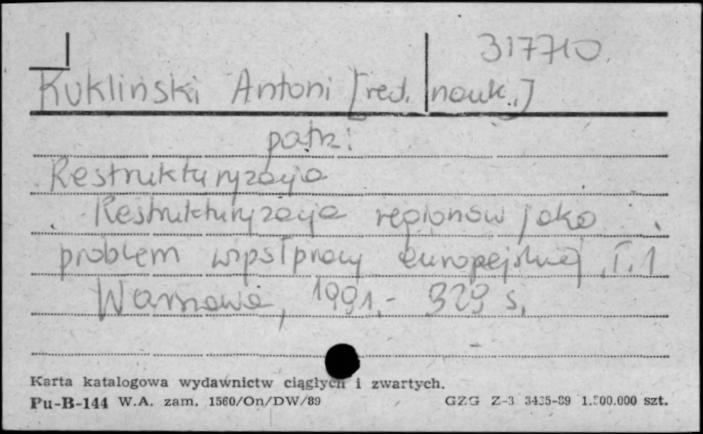 317710
Kukliński Antoni [red. nauk.]
patrz:
Restrukturyzacja
Restrukturyzacja regionów jako
problem współpracy europejskiej, T. 1
Warszawa, 1991.- 329 s.
Karta katalogowa wydawnictw ciągłych i zwartych.
Pu-B-144 W.A. zam. 1560/On/DW/89 GZG Z-3 3435-89 1.500.000 szt.